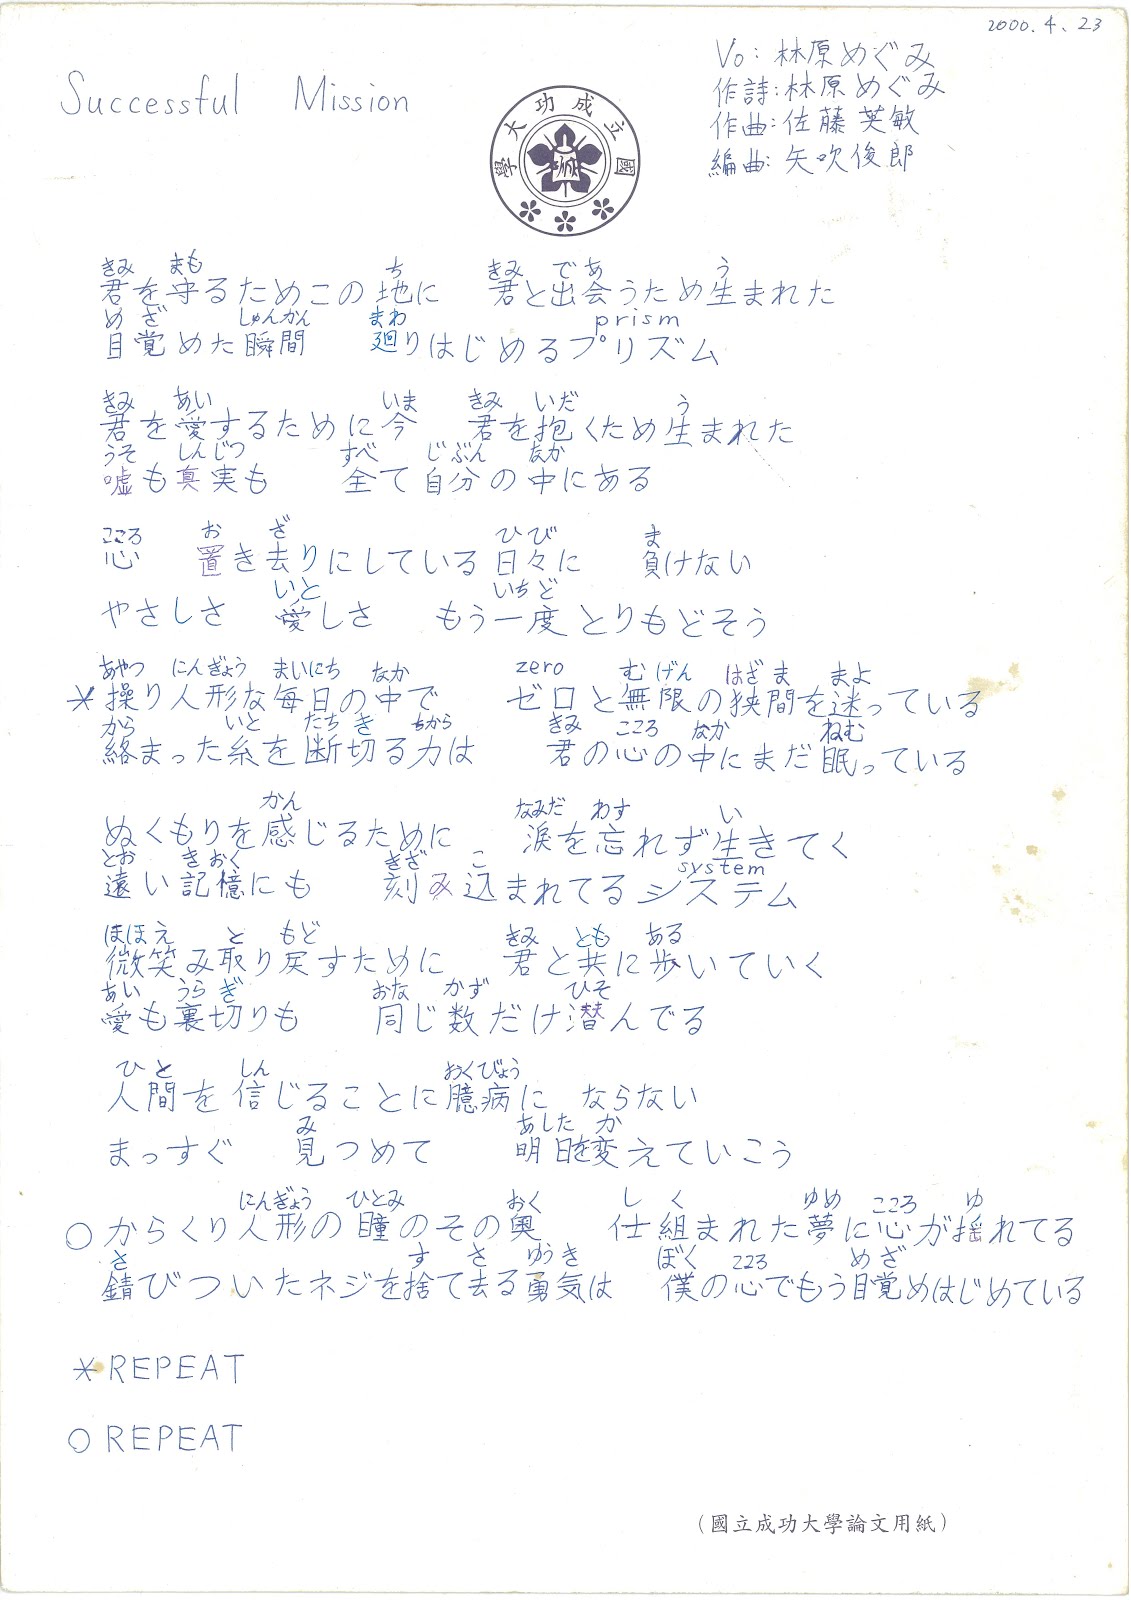 2000.4.23
Successful Mission
Vo: 林原めぐみ
作詩:林原めぐみ
作曲:佐藤英敏
編曲:矢吹俊郎
國立成功大學
きみ まも ち きみ であ う
君を守るためこの地に 君と出会うため生まれた
めざ しゅんかん まわ prism
目覚めた瞬間 廻りはじめるプリズム
きみ あい いま きみ いだ う
君を愛するために今 君を抱くため生まれた
うそ しんじつ すべ じぶん なか
嘘も真実も 全て自分の中にある
こころ お ざ ひび ま
心 置き去りにしている日々に 負けない
いと いちど
やさしさ 愛しさ もう一度とりもどそう
あやつ にんぎょう まいにち なか zero むげん はざま まよ
*操り人形な毎日の中で ゼロと無限の狭間を迷っている
から いと たち き ちから きみ こころ なか ねむ
絡まった糸を断切る力は 君の心の中にまだ眠っている
かん なみだ わす い
ぬくもりを感じるために 涙を忘れず生きてく
とお きおく きざ こ system
遠い記憶にも 刻み込まれてるシステム
ほほえ と もど きみ とも ある
微笑み取り戻すために 君と共に歩いていく
あい うらぎ おな かず ひそ
愛も裏切りも 同じ数だけ潜んでる
ひと しん おくびょう
人間を信じることに臆病に ならない
み あした か
まっすぐ 見つめて 明日を変えていこう
にんぎょう ひとみ おく しく ゆめ こころ ゆ
○からくり人形の瞳のその奥 仕組まれた夢に心が揺れてる
さ す さ ゆうき ぼく こころ めざ
錆びついたネジを捨て去る勇気は 僕の心でもう目覚めはじめている
*REPEAT
○REPEAT
(國立成功大學論文用紙)